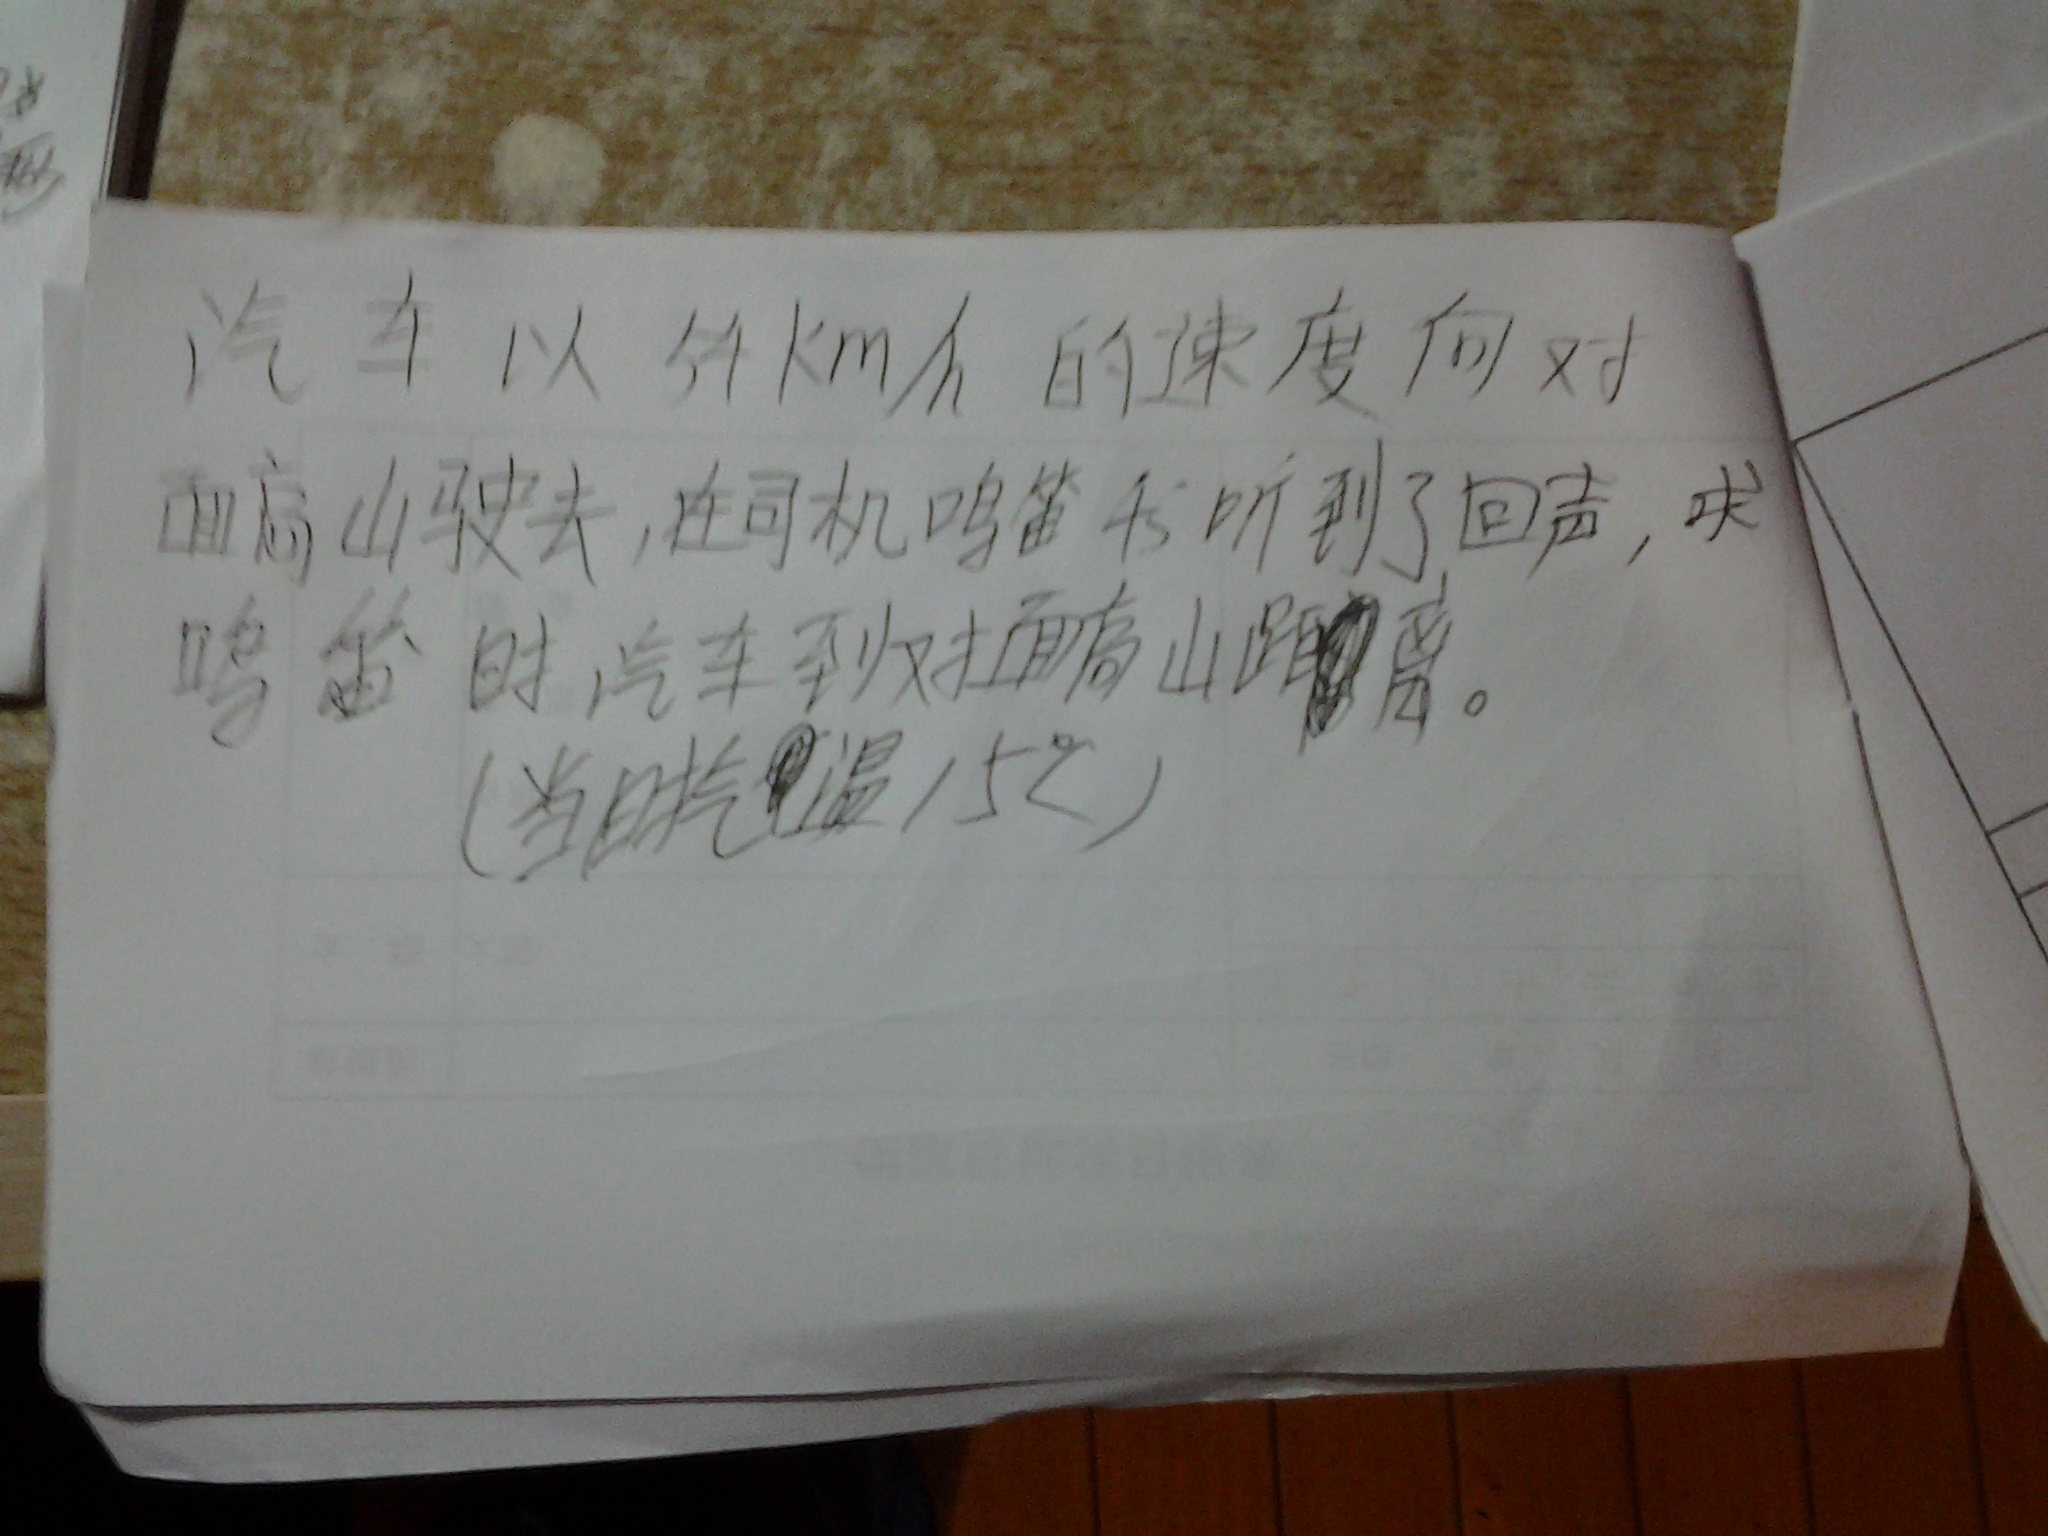 汽车以54km/h的速度向对
面高山驶去,在司机鸣笛5s听到了回声,求
鸣笛时汽车到对面高山距离。
(当时汽温15℃)